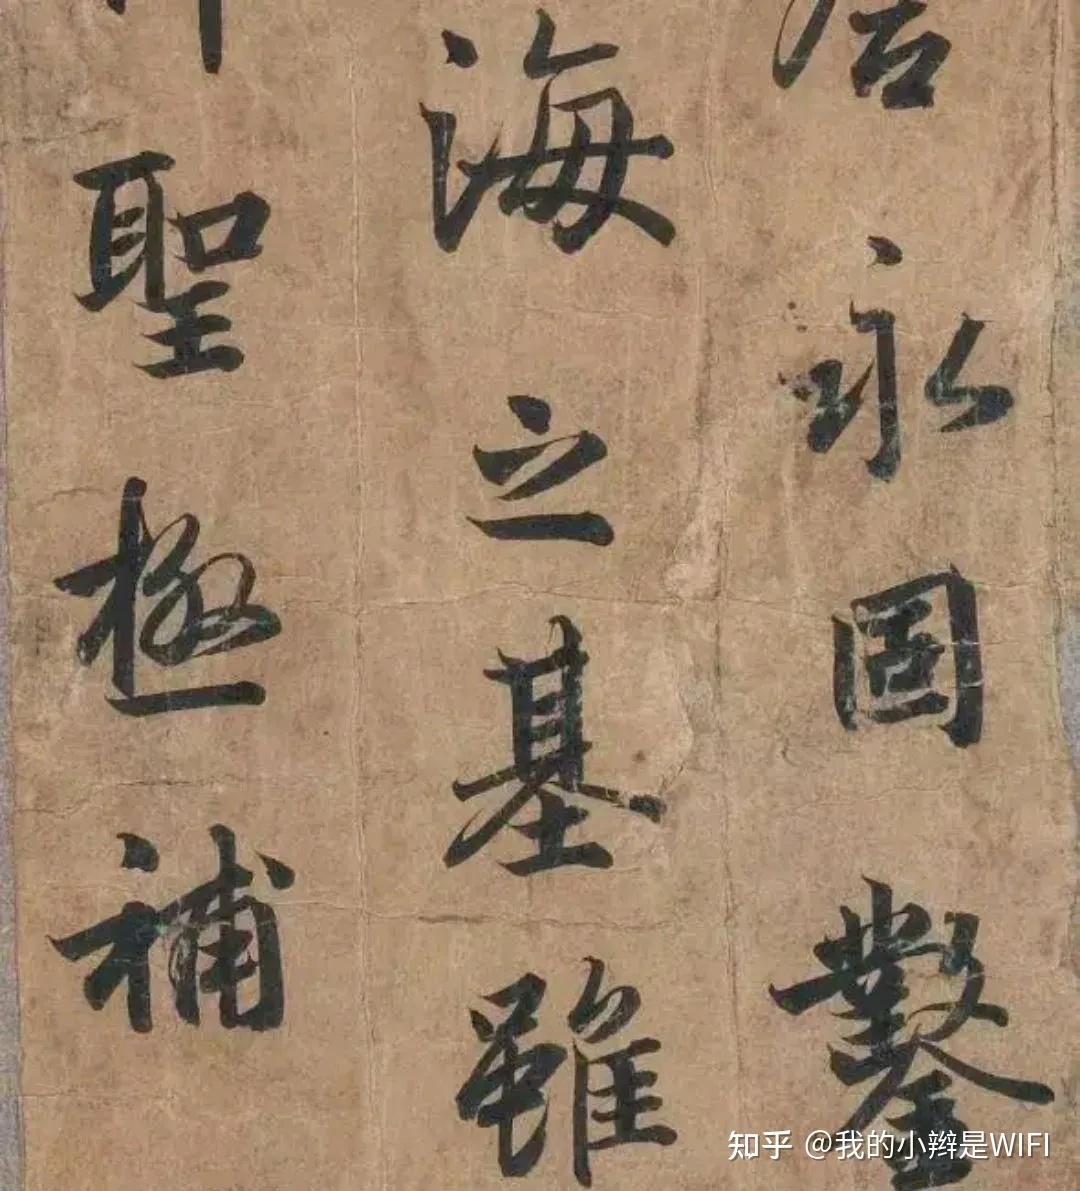 永固鑿
海之基雖
聖極補
知乎 @我的小辫是WIFI